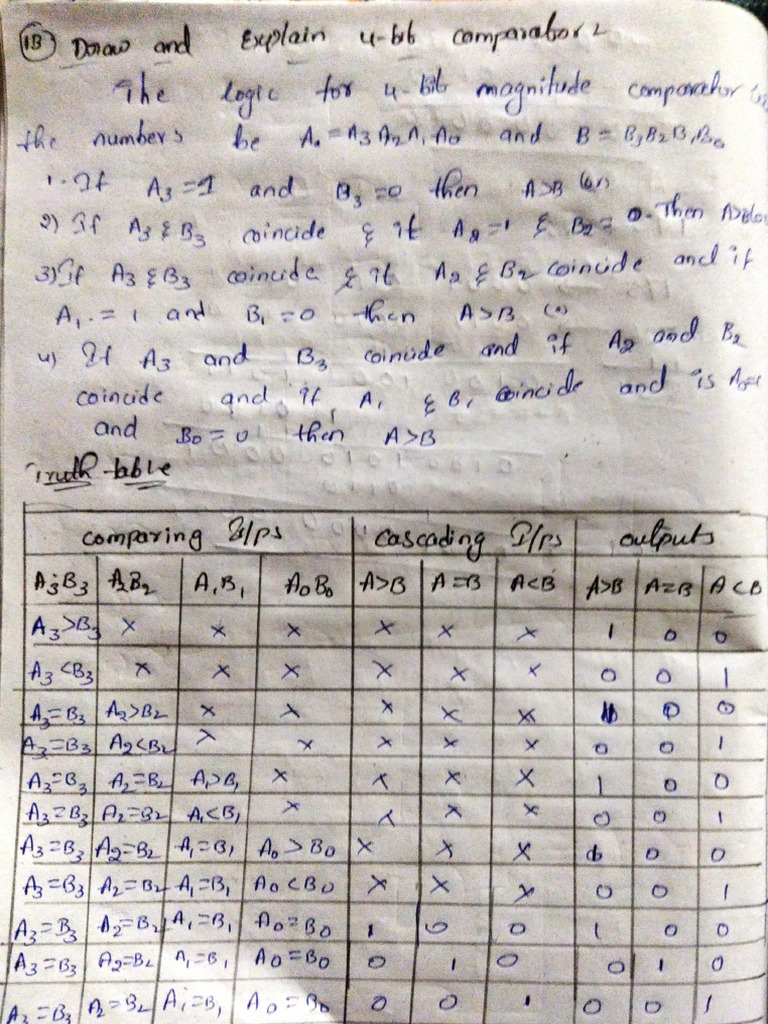 13 Draw and Explain 4-bit comparator?
The logic for 4-bit magnitude comparator
the numbers be A = A3 A2 A1 A0 and B = B3 B2 B1 B0
1. If A3 = 1 and B3 = 0 then A>B (or)
2) If A3 & B3 coincide & if A2 = 1 & B2 = 0. Then A>B (or)
3) If A3 & B3 coincide & if A2 & B2 coincide and if
A1 = 1 and B1 = 0 then A>B (or)
4) If A3 and B3 coincide and if A2 and B2
coincide and if A1 & B1 coincide and is A0=1
and B0 = 0 then A>B
Truth table
comparing I/ps cascading I/ps outputs
A3 B3 A2 B2 A1 B1 A0 B0 A>B A=B A<B A>B A=B A<B
A3>B3 × × × × × × 1 0 0
A3<B3 × × × × × × 0 0 1
A3=B3 A2>B2 × × × × × 1 0 0
A3=B3 A2<B2 × × × × × 0 0 1
A3=B3 A2=B2 A1>B1 × × × × 1 0 0
A3=B3 A2=B2 A1<B1 × × × × 0 0 1
A3=B3 A2=B2 A1=B1 A0>B0 × × × 1 0 0
A3=B3 A2=B2 A1=B1 A0<B0 × × × 0 0 1
A3=B3 A2=B2 A1=B1 A0=B0 1 0 0 1 0 0
A3=B3 A2=B2 A1=B1 A0=B0 0 1 0 0 1 0
A3=B3 A2=B2 A1=B1 A0=B0 0 0 1 0 0 1